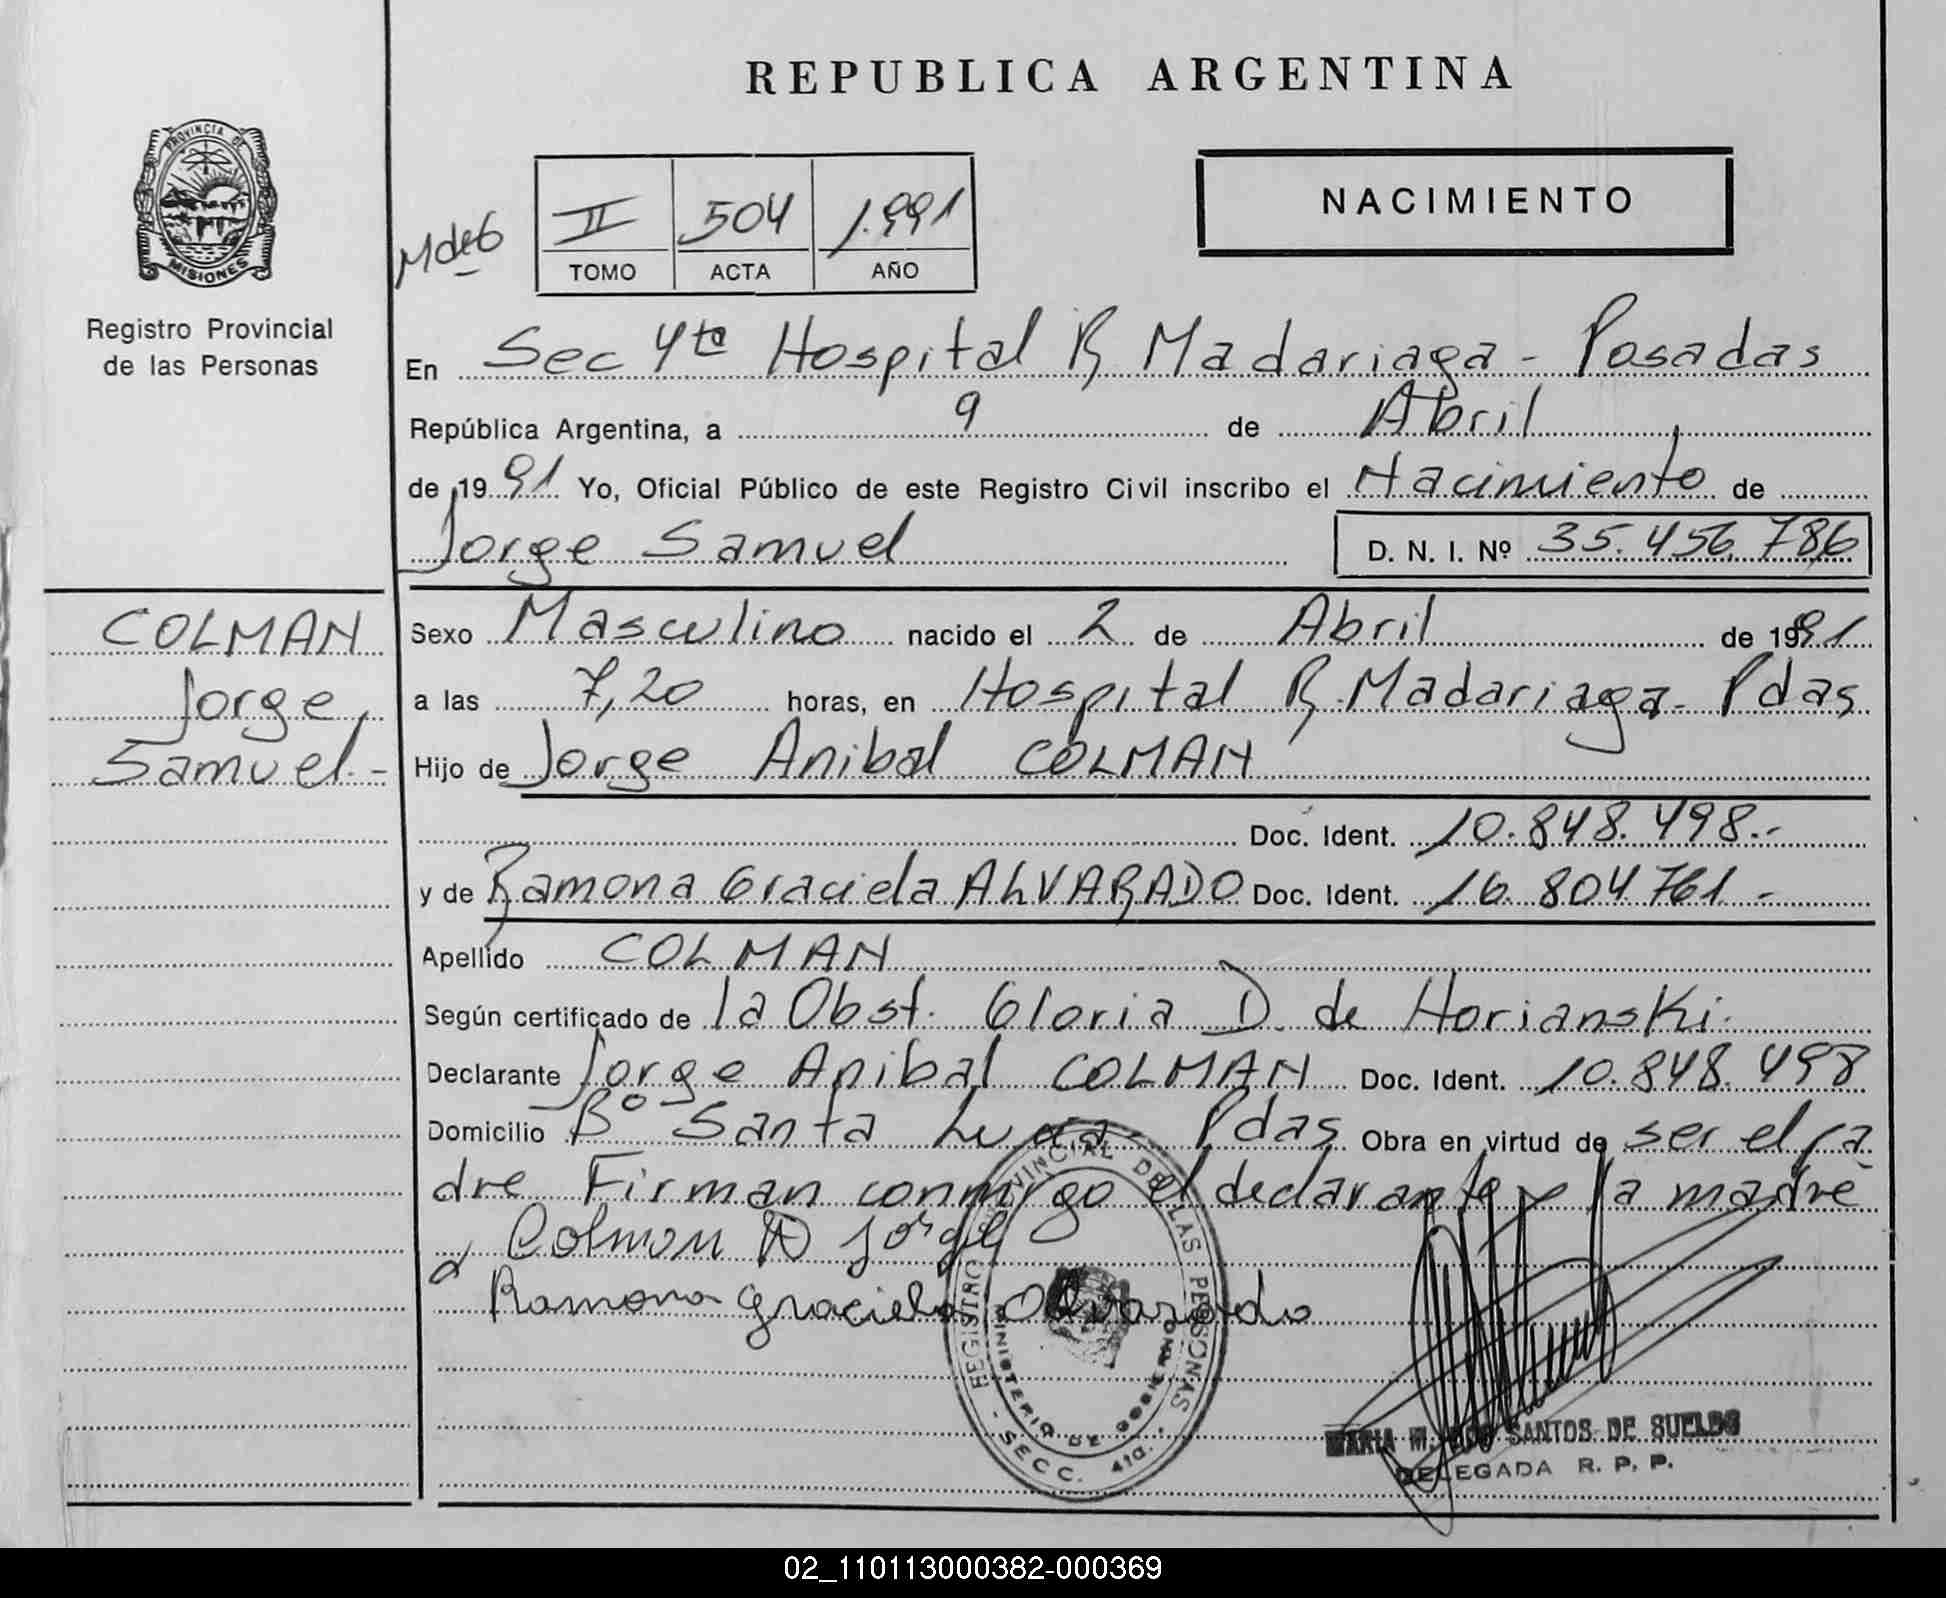 REPUBLICA ARGENTINA
PROVINCIA DE
MISIONES
Registro Provincial
de las Personas
II 504 1.991
TOMO ACTA AÑO
NACIMIENTO
En Sec 4ta Hospital R Madariaga - Posadas
República Argentina, a 9 de Abril
de 1991 Yo, Oficial Público de este Registro Civil inscribo el Nacimiento de
Jorge Samuel D. N. I. Nº 35.456.786
COLMAN
Jorge,
Samuel.-
Sexo Masculino nacido el 2 de Abril de 1991
a las 7,20 horas, en Hospital R. Madariaga - Pdas
Hijo de Jorge Anibal COLMAN
Doc. Ident. 10.848.498.-
y de Ramona Graciela ALVARADO Doc. Ident. 16.804.761.-
Apellido COLMAN
Según certificado de la Obst. Gloria D. de Horianski.
Declarante Jorge Anibal COLMAN Doc. Ident. 10.848.498
Domicilio Bº Santa Lucia - Pdas Obra en virtud de ser el pa
dre Firman conmigo el declarante y la madre
Colman A Jorge
Ramona Graciela Alvarado
REGISTRO PROVINCIAL DE LAS PERSONAS
MINISTERIO DE GOBIERNO
- SECC. 4ta. -
MARIA M. DOS SANTOS DE SUELDO
DELEGADA R. P. P.
02_110113000382-000369